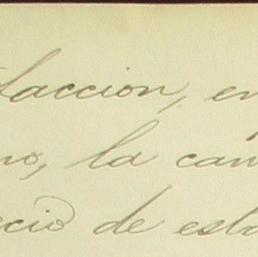 faccion, en
no, la can
ecio de esta